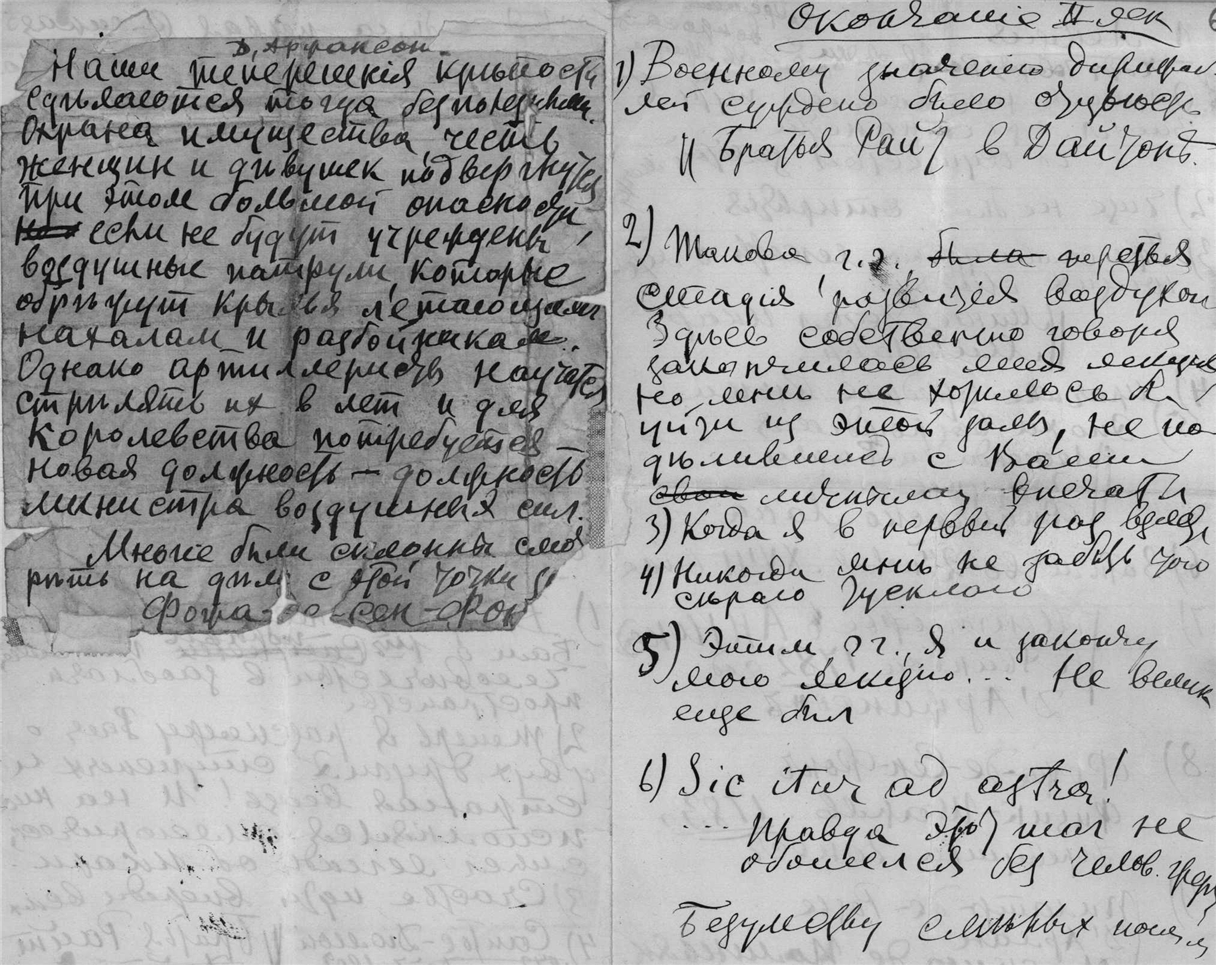 Д'Арлансон.
Наши теперешнія крѣпости
сдѣлаются тогда безполезными.
Охрана имущества честь
женщин и дѣвушек подвергнутся
при этом большой опасности
но если не будут учреждены
воздушные патрули, которые
обрѣжут крылья летающим
нахалам и разбойникам.
Однако артиллеристы научатся
стрѣлять их в лет и для
королевства потребуется
новая должность — должность
министра воздушных сил.
Многіе были склонны смо
рѣть на дѣло с этой точки
Окончаніе II лек
1) Военному значенію дирижаб
лей суждено было
Братья Райт в Дайтонѣ.
2) Такова г.г., была первая
стадія развитія воздухоп
Здѣсь собственно говоря
закончилась моя лекція
но мнѣ не хотѣлось б
уйти из этой залы, не по
дѣлившись с Вами
свои личными впечатл
3) Когда я в первый раз
4) Никогда мнѣ не забыть того
сѣраго тусклаго
5) Этим г.г., я и закончу
мою лекцію... Не велик
еще был
6) Sic itur ad astra!
.... Правда этот шаг не
обошелся без челов.
Безумству смѣлых поем